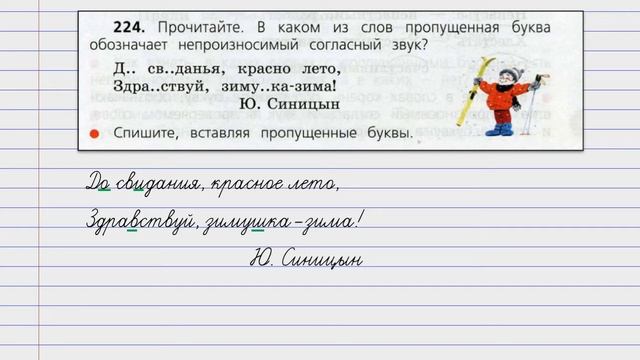 224. Прочитайте. В каком из слов пропущенная буква
обозначает непроизносимый согласный звук?
Д.. св..данья, красно лето,
Здра..ствуй, зиму..ка-зима!
Ю. Синицын
Спишите, вставляя пропущенные буквы.
До свидания, красное лето,
Здравствуй, зимушка – зима!
Ю. Синицын